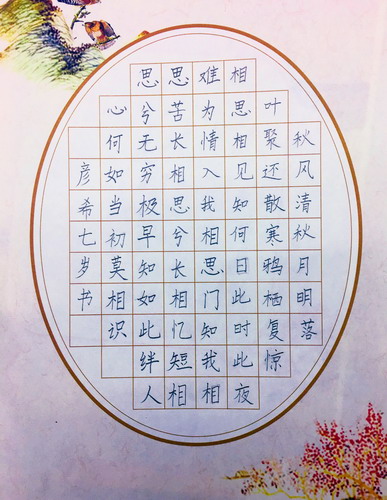 秋风清秋月明落
叶聚还散寒鸦栖复惊
相思相见知何日此时此夜
难为情入我相思门知我相
思苦长相思兮长相忆短相
思兮无穷极早知如此绊人
心何如当初莫相识
彦希七岁书